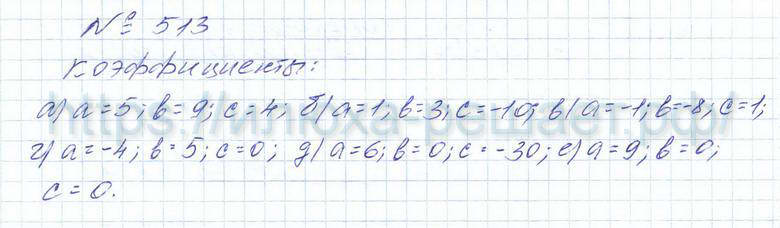 № 513
Коэффициенты:
а) a=5; b=9; c=4; б) a=1; b=3; c=-10; в) a=-1; b=-8; c=1;
г) a=-4; b=5; c=0; д) a=6; b=0; c=-30; е) a=9; b=0;
c=0.
https://илюха-решает.рф/